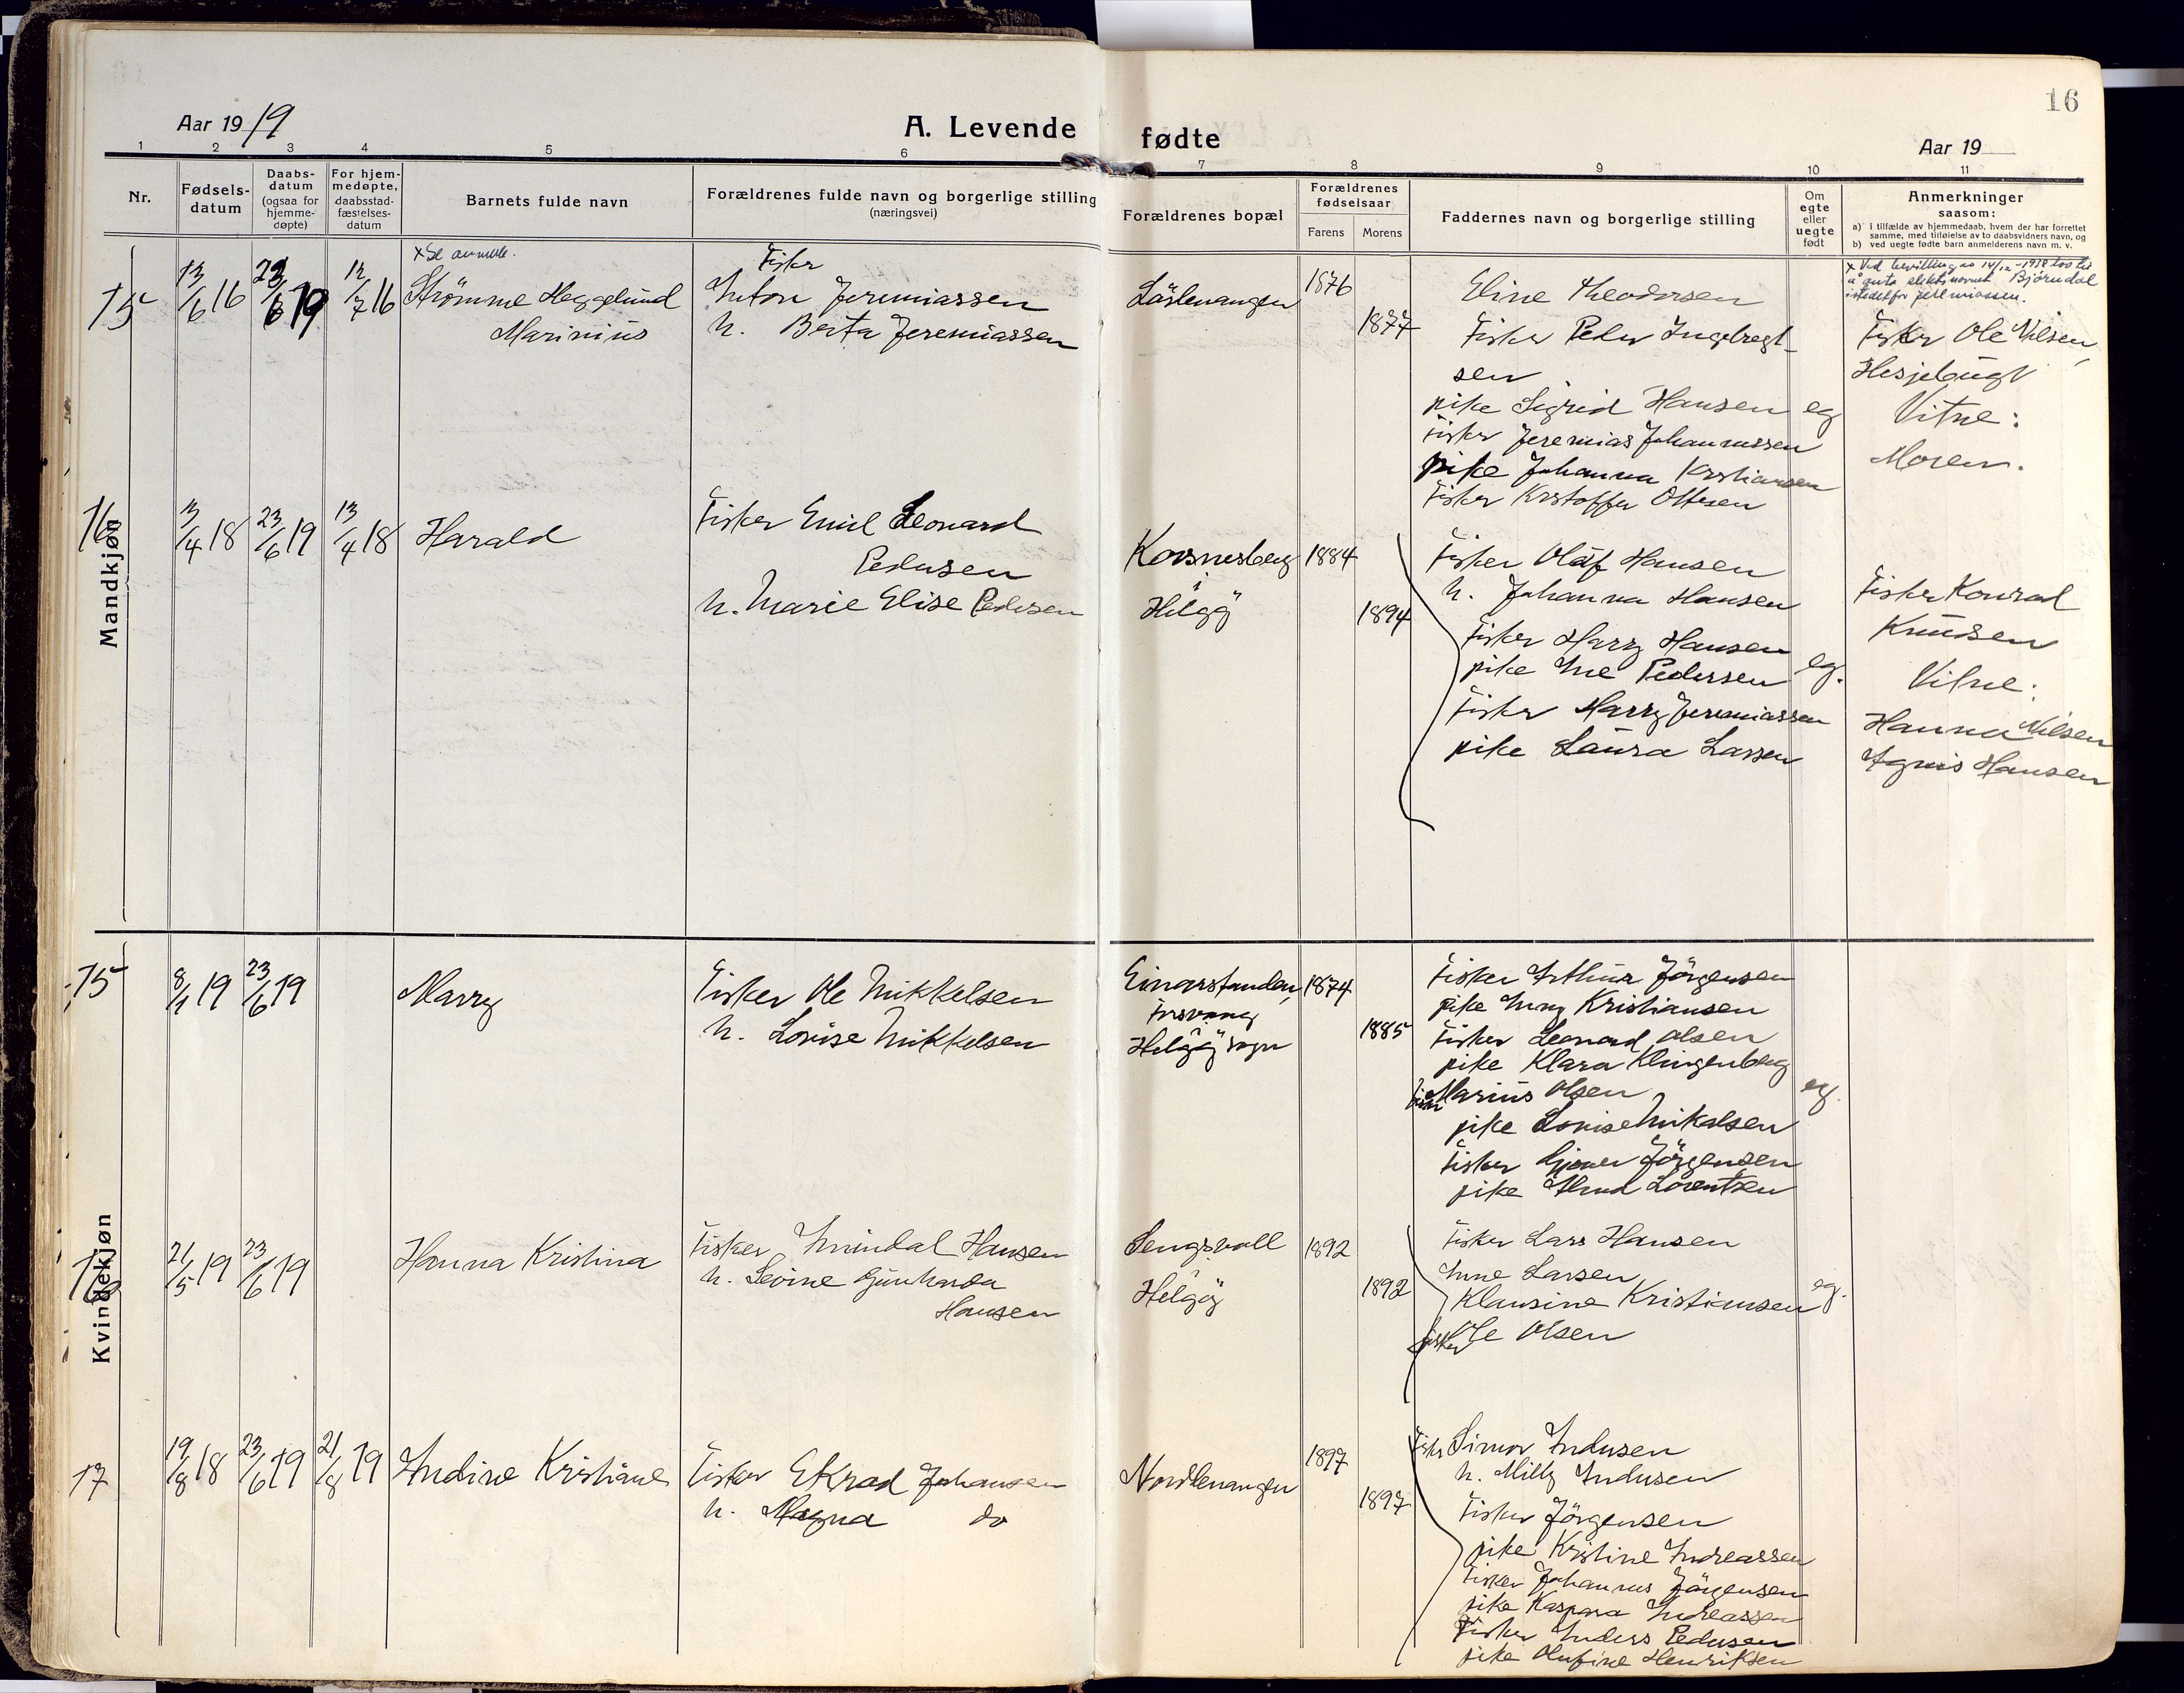 16
Aar 1919
A. Levende fødte
Aar 19
1 2 3 4 5 6 7 8 9 10 11
Nr.
Fødsels-
datum
Daabs-
datum
(ogsaa for
hjemme-
døpte)
For hjem-
medøpte,
daabsstad-
fæstelses-
datum
Barnets fulde navn
Forældrenes fulde navn og borgerlige stilling
(næringsvei)
Forældrenes bopæl
Forældrenes
fødselsaar
Farens Morens
Faddernes navn og borgerlige stilling
Om
egte
eller
uegte
født
Anmerkninger
saasom:
a) i tilfælde av hjemmedaab, hvem der har forrettet
samme, med tilføielse av to daabsvidners navn, og
b) ved uegte fødte barn anmelderens navn m. v.
Mandkjøn
15
13/6 16
23/6 19
12/7 16
x Se anmerk.
Strömme Heggelund
Marinius
Fisker
Anton Jeremiassen
h. Berta Jeremiassen
Lörlenangen
1876
1877
Eline Theodorsen
Fisker Peder Ingebregt-
sen
pike Sigrid Hansen
fisker Jeremias Johannessen
pike Johanna Krstiansen
Fisker Krstoffer Ottesen
eg
x Ved bevilling av 14/12-1938
slektsnavnet Bjørndal
istedetfor Jeremiassen.
Fisker Ole Nilsen,
Hesjebugt
Vitne:
Moren.
16
13/4 18
23/6 19
13/4 18
Harald
Fisker Emil Leonard
Pedersen
h. Marie Elise Pedersen
Korsnesberg
Helgöy
1884
1894
Fisker Olaf Hansen
h. Johanna Hansen
Fisker Harry Hansen
pike Ane Pedersen
Fisker Harry Jeremiassen
pike Laura Larsen
eg.
Fisker Konrad
Knudsen
Vitne:
Hanna Nilsen
Agnes Hansen
Kvindekjøn
15
8/1 19
23/6 19
Marry
Fisker Ole Mikkelsen
h. Lovise Mikkelsen
Einarstanden,
Helgöy sogn
1874
1885
Fisker Arthur Jörgensen
pike Kristiansen
Fisker Leonard Olsen
pike Klara Klingenberg
Fisker Marius Olsen
pike Lovise Mikalsen
Fisker Jörgensen
pike Lorentzen
eg.
16
21/5 19
23/6 19
Hanna Kristina
Fisker Amindal Hansen
h. Sevine Gunharda
Hansen
Sengsvoll
Helgöy
1892
1892
Fisker Lars Hansen
Anne Larsen
Klausine Kristiansen
fisker Ole Olsen
eg.
17
19/8 18
23/6 19
21/8 19
Andine Kristiane
Fisker Ekrad Johansen
h. Magna do
Nordlenangen
1897
1897
Fisker Simon Andersen
h. Milly Andersen
Fisker Jörgensen
pike Kristine Andreassen
Fisker Johannes Jörgensen
pike Kaspara Andreassen
Fisker Anders Pedersen
pike Olufine Henriksen